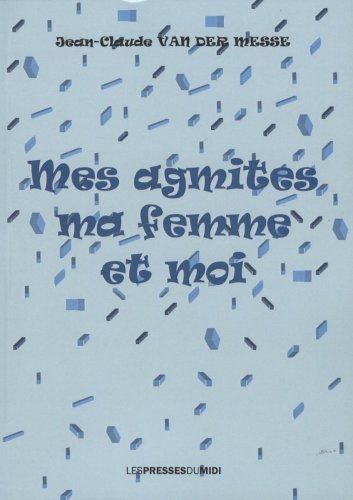 Jean-Claude VAN DER MESSE
Mes agmites
ma femme
et moi
LES PRESSES DU MIDI